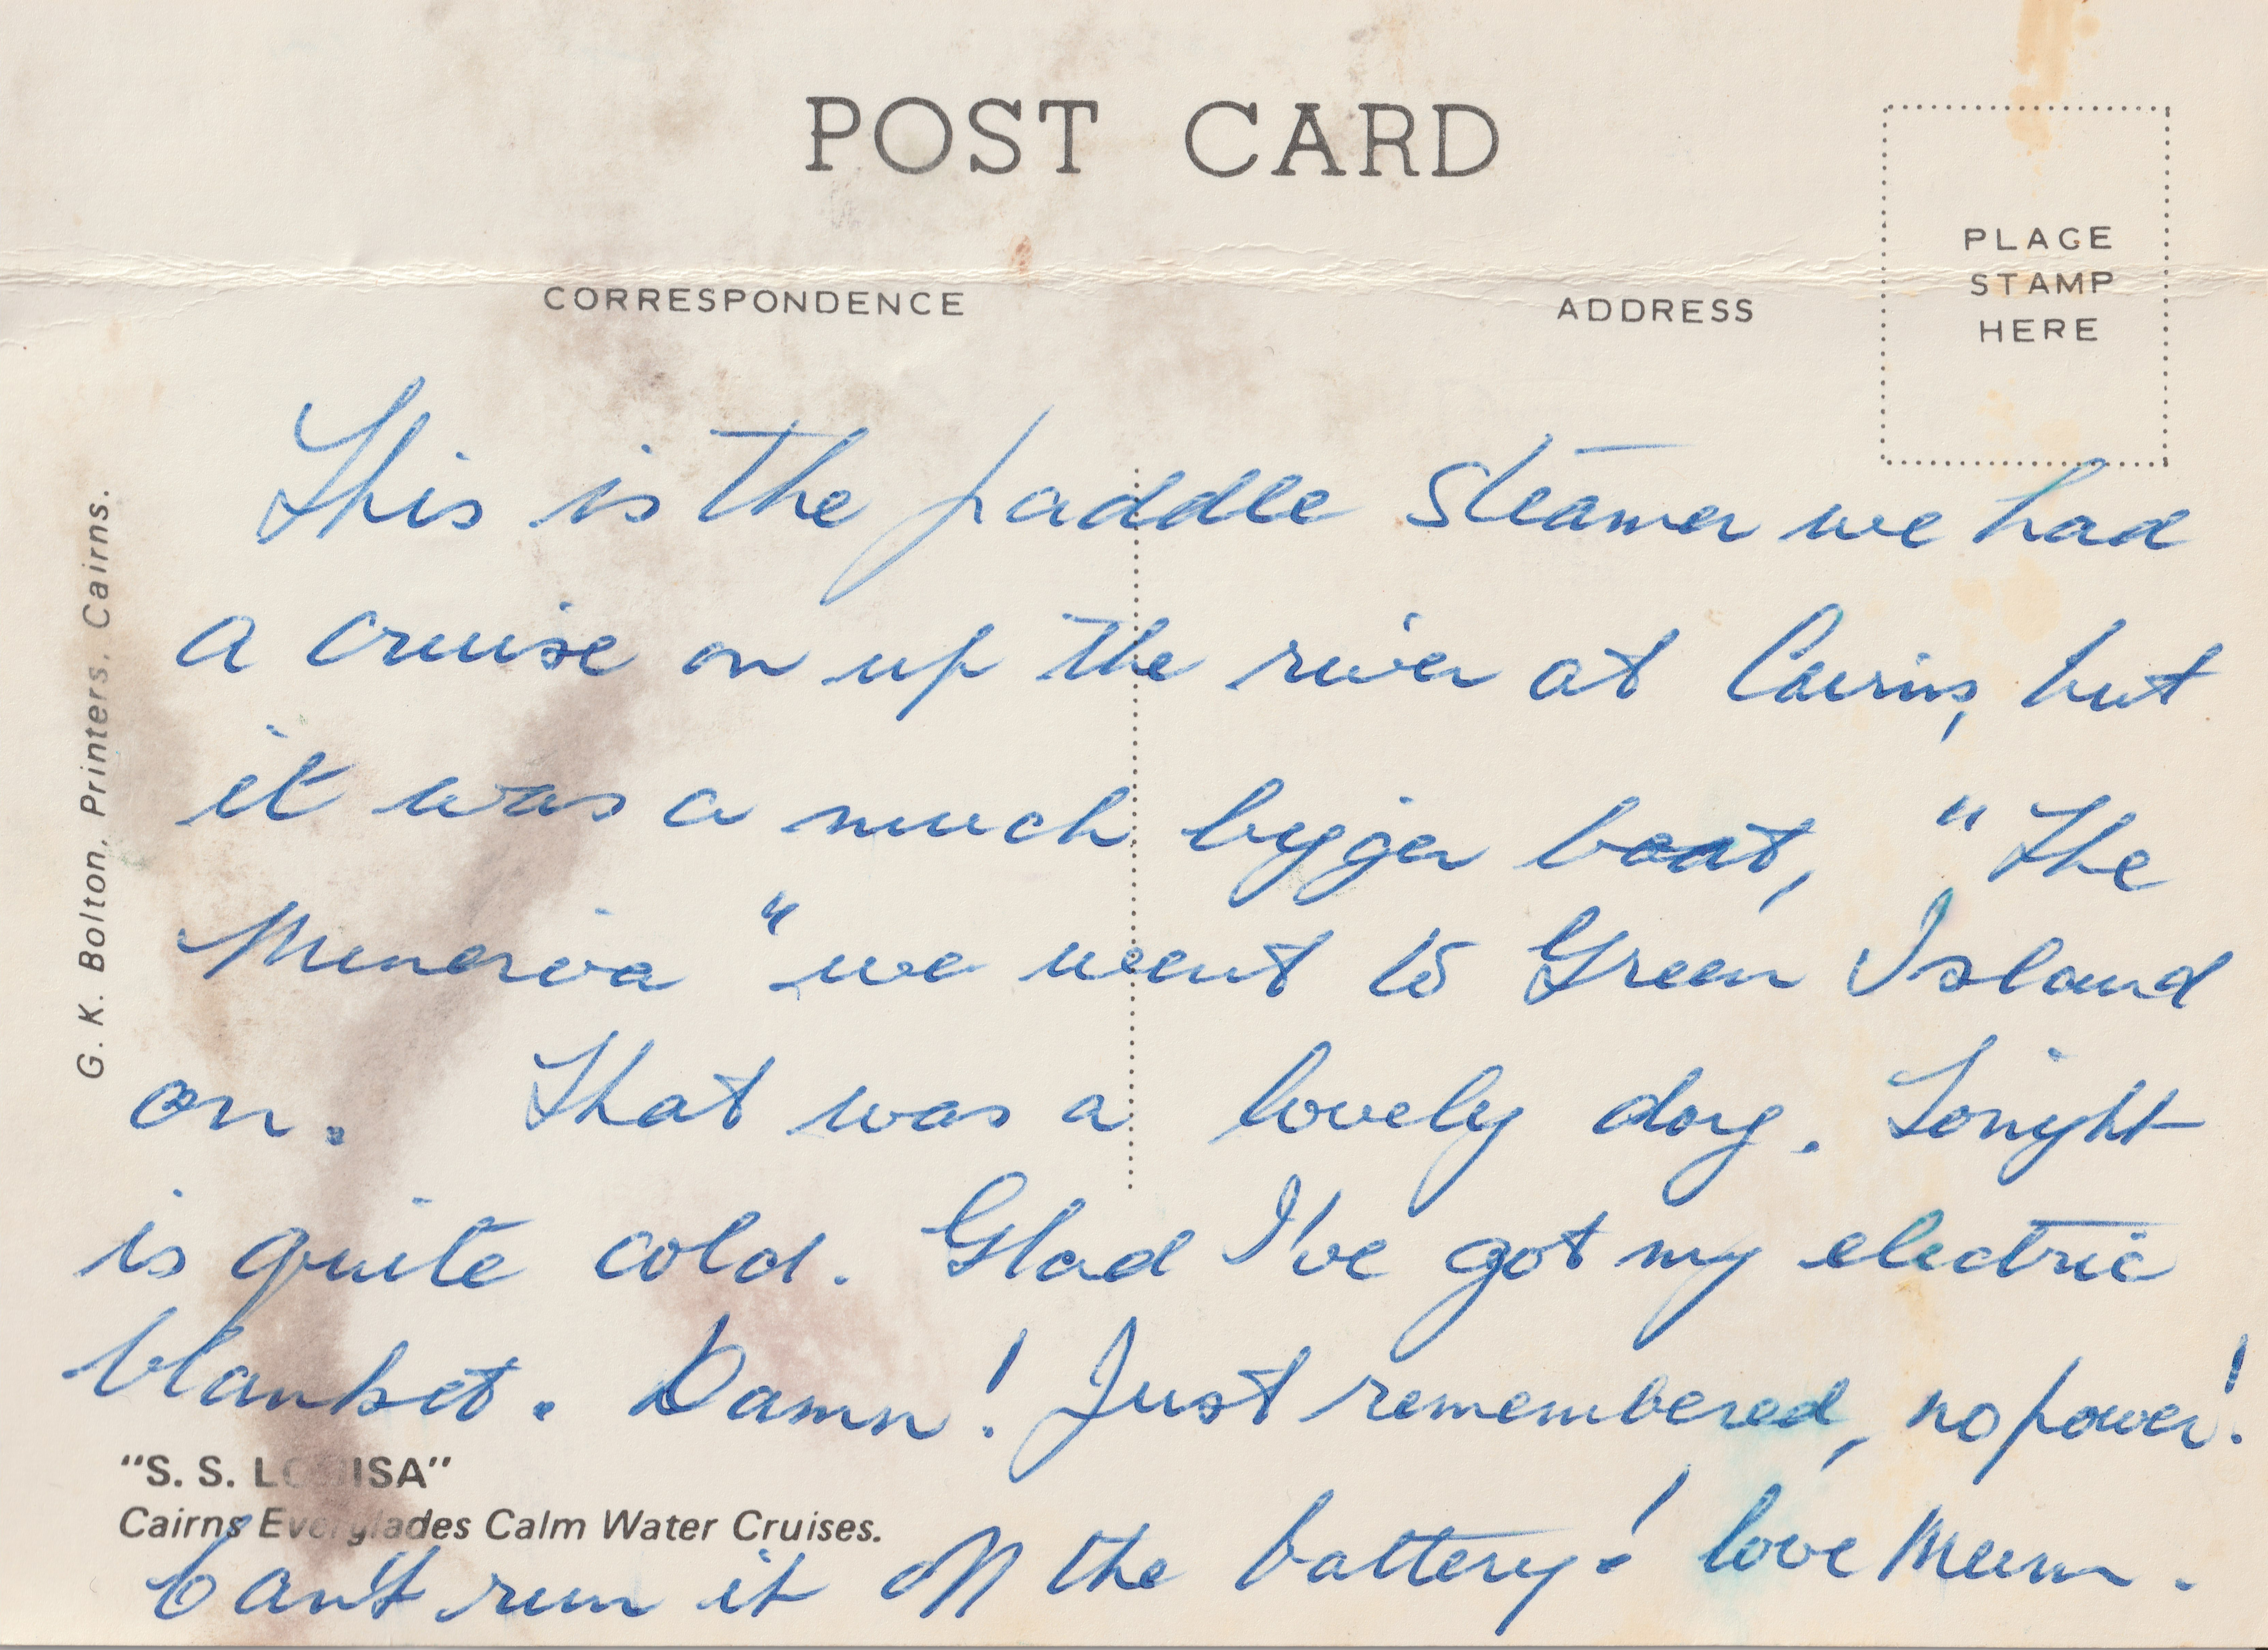 POST CARD
CORRESPONDENCE
ADDRESS
PLACE
STAMP
HERE
This is the paddle steamer we had
a cruise on up the river at Cairns, but
it was a much bigger boat, "The
Minerva" we went to Green Island
on. That was a lovely day. Tonight
is quite cold. Glad I've got my electric
blanket. Damn! Just remembered, no power!
Can't run it off the battery! love Mum.
"S. S. LOUISA"
Cairns Everglades Calm Water Cruises.
G. K. Bolton, Printers, Cairns.